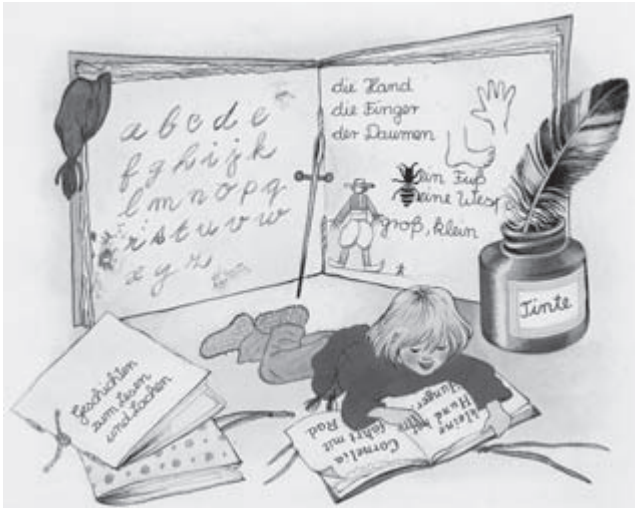 a b c d e
f g h i j k
l m n o p q
r s t u v w
x y z
die Hand
die Finger
der Daumen
ein Fuß
eine Wesp
groß, klein
Tinte
Geschichten
zum Lesen
und Lachen
Cornelia
fährt mit
Rad.
kleine
Hund hat
Hunger